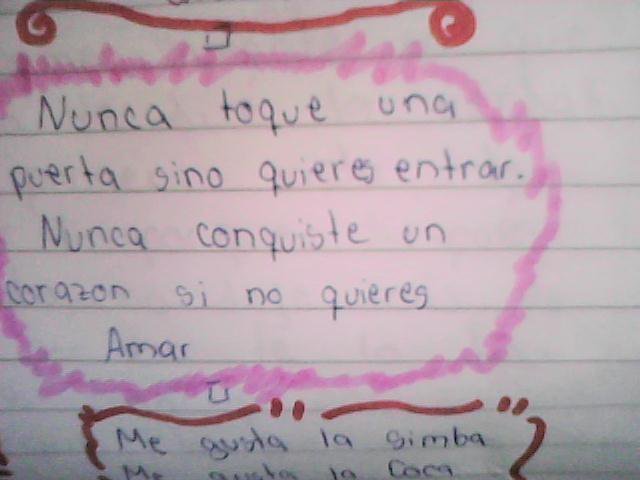 Nunca toque una
puerta sino quieres entrar.
Nunca conquiste un
corazon si no quieres
Amar
Me gusta la simba
Me gusta la Coca